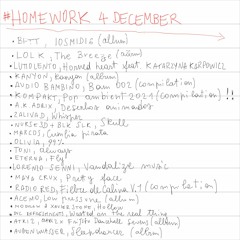 #HOMEWORK 4 DECEMBER
• BLTT, IOSMIDI6 (album)
• LOLK, The Breeze (album)
• LUTOLENTO, Horned heart feat. KATARZYNA KARPOWICZ
• KANYON, Kanyon (album)
• AUDIO BAMBINO, Bam 002 (compilation)
• KOMPAKT, Pop ambient 2021 (compilation) !!
• A.K.ADRIX, Desechos animados
• ZALIVAD, Whisper
• NURSE3D + BLK SLK, Skull
• MARCOS, Cumbia pirata
• OLIVIA, 99%
• TONI, always
• ETERNA, Fly
• LORENZO SENNI, Vandalize music
• MAYA CERA, Party face
• RADIO RED, Fiebre de Calima V.1 (compilation)
• ACEMO, Low pressure (album)
• Hollow
• Wasted on the real thing
• Dancehall Series (album)
• AUDEN WATSIER, Slapdancer (album)